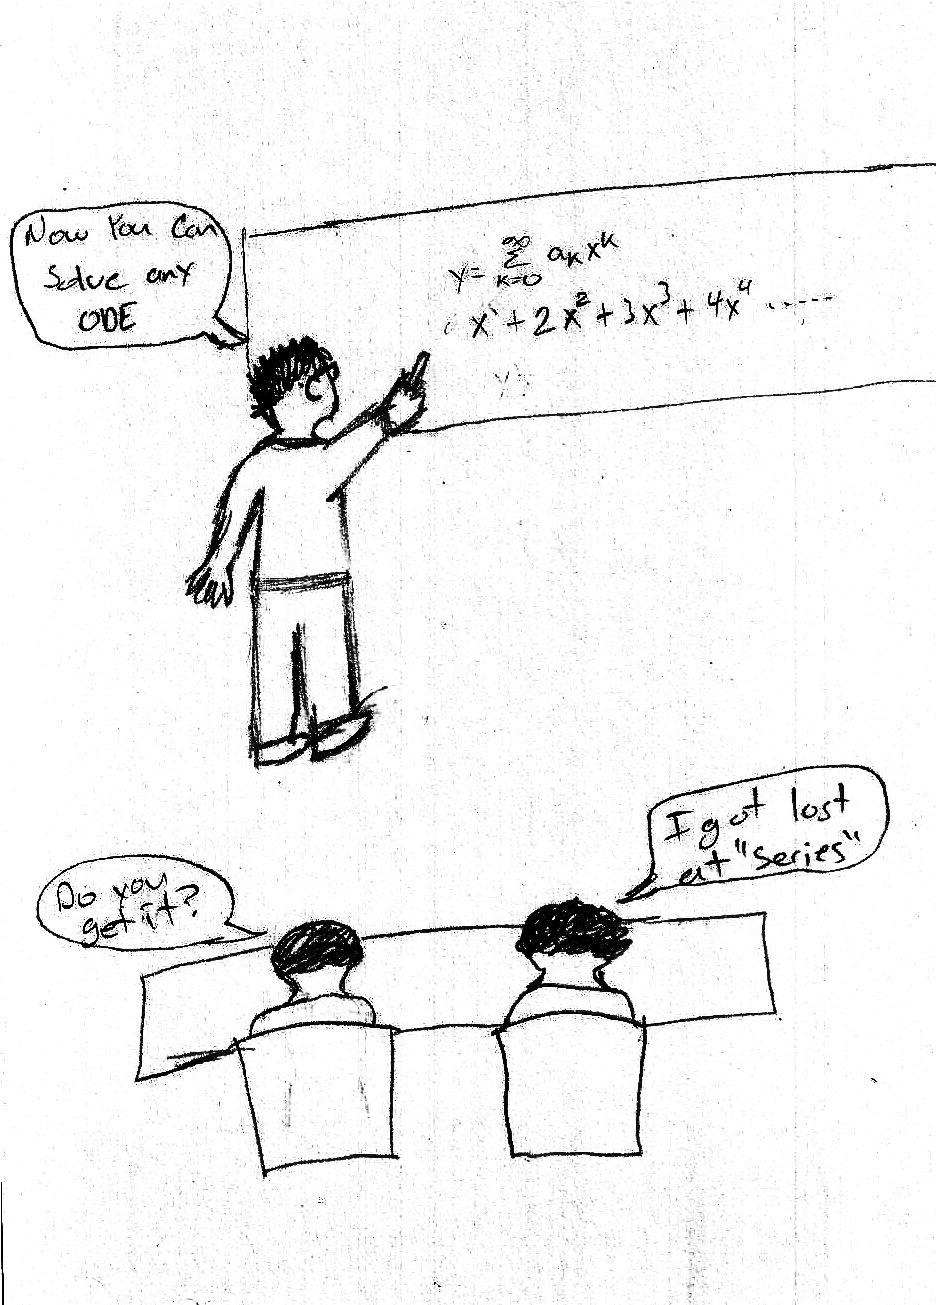 Now You Can
Solve any
ODE
y = ∞∑k=0 aₖxᵏ
x¹ + 2x² + 3x³ + 4x⁴ ......
y
Do you
get it?
I got lost
at "series"